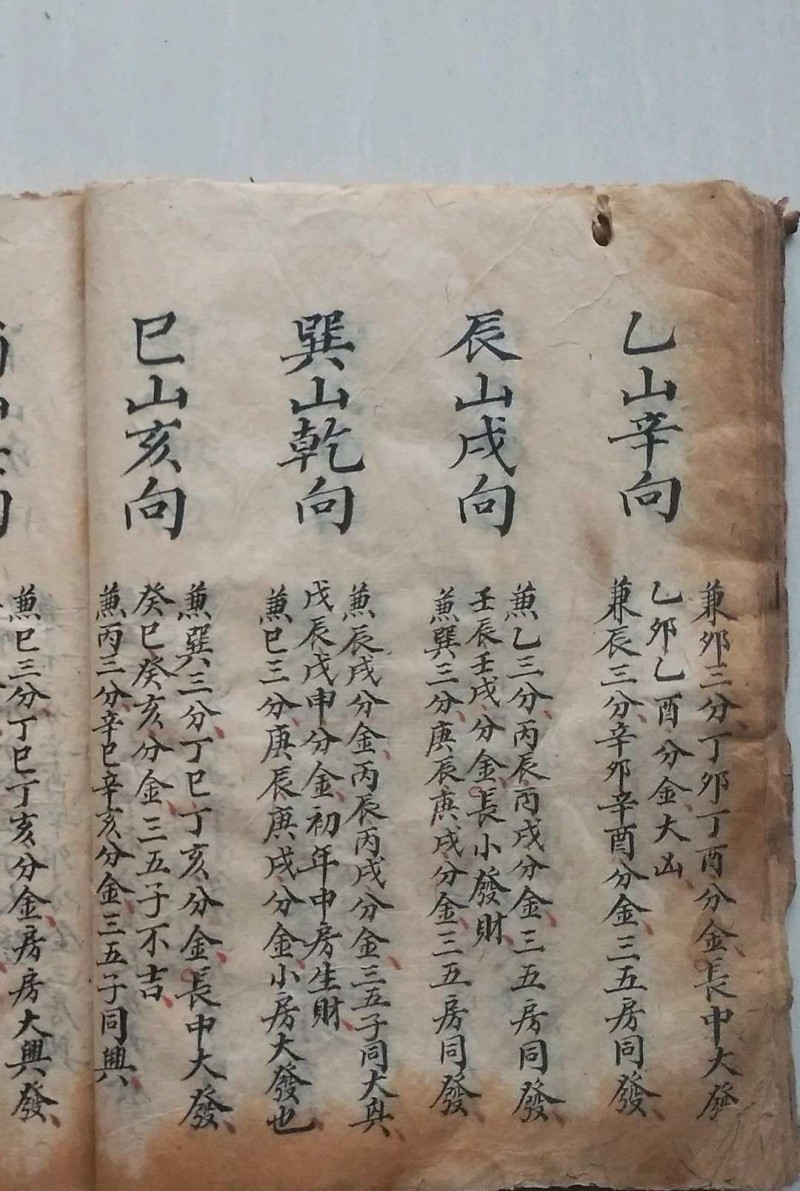 乙山辛向
兼卯三分丁卯丁酉分金長中大發
乙卯乙酉分金大凶
兼辰三分辛卯辛酉分金三五房同發
辰山戌向
兼乙三分丙辰丙戌分金三五房同發
壬辰壬戌分金長小發財
兼巽三分庚辰庚戌分金三五房同發
巽山乾向
兼辰戌分金丙辰丙戌分金三五子同大興
戊辰戊申分金初年中房生財
兼巳三分庚辰庚戌分金小房大發也
巳山亥向
兼巽三分丁巳丁亥分金長中大發
癸巳癸亥分金三五子不吉
兼丙三分辛巳辛亥分金三五子同興
兼巳三分丁巳丁亥分金房房大興發